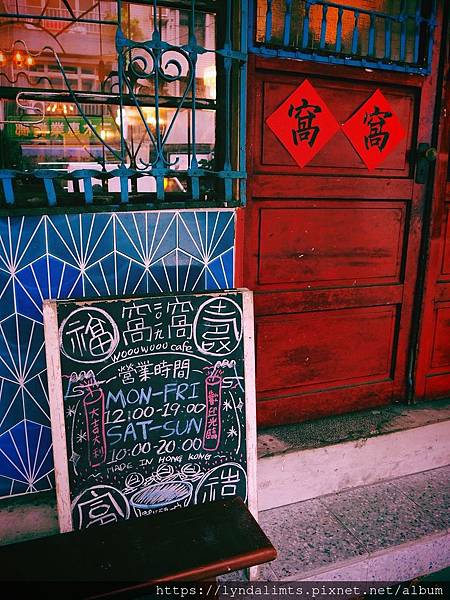 窩 窩
福 窩 二〇一九 窩 壽
woou woou cafe
營業時間
MON-FRI
12:00-19:00
SAT-SUN
10:00-20:00
MADE IN HONG KONG
大吉大利
歡迎光臨
富
https://lyndalimts.pixnet.net/album